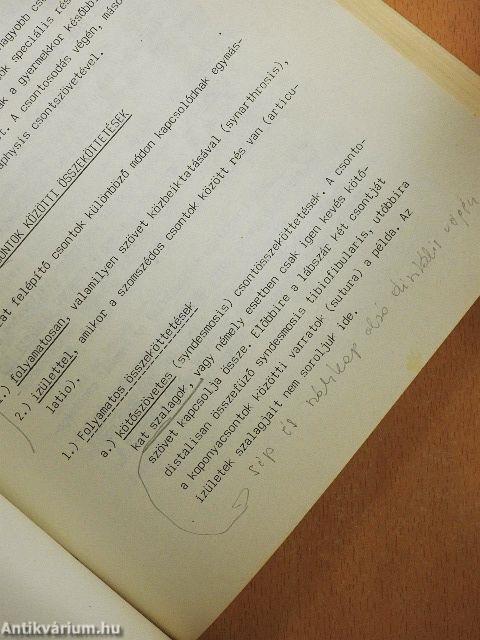 nagyobb
speciális rés
a gyermekkor később
A csontosodás végén, máso
physis csontszövetével.
CSONTOK KÖZÖTTI ÖSSZEKÖTTETÉSEK
felépítő csontok különböző módon kapcsolódnak egymás-
1.) folyamatosan, valamilyen szövet közbeiktatásával (synarthrosis),
2.) ízülettel, amikor a szomszédos csontok között rés van (articu-
latió).
1.) Folyamatos összeköttetések
a.) kötőszövetes (syndesmosis) csontösszeköttetések. A csonto-
kat szalagok, vagy némely esetben csak igen kevés kötő-
szövet kapcsolja össze. Előbbire a lábszár két csontját
distalisan összefűző syndesmosis tibiofibularis, utóbbira
a koponyacsontok közötti varratok (sutura) a példa. Az
ízületek szalagjait nem soroljuk ide.
síp és alsó distális végén
Antikvárium.hu